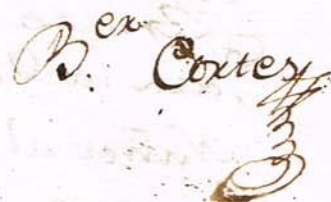 B.er Cortes